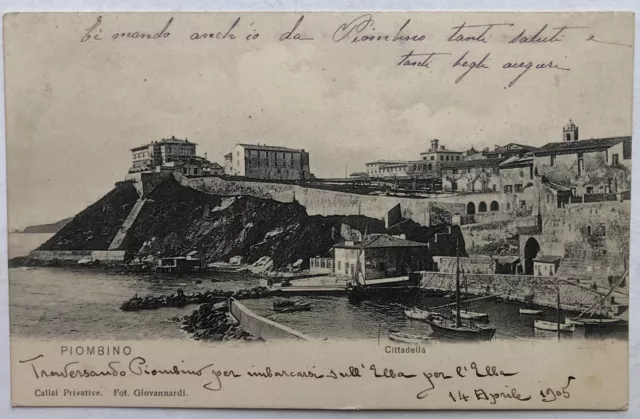 Ei mando anch'io da Piombino tanti saluti e
tanti begli auguri
PIOMBINO
Cittadella
Traversando Piombino per imbarcarsi sull'Elba per l'Elba
Callai Privative. Fot. Giovannardi.
14 Aprile 1905